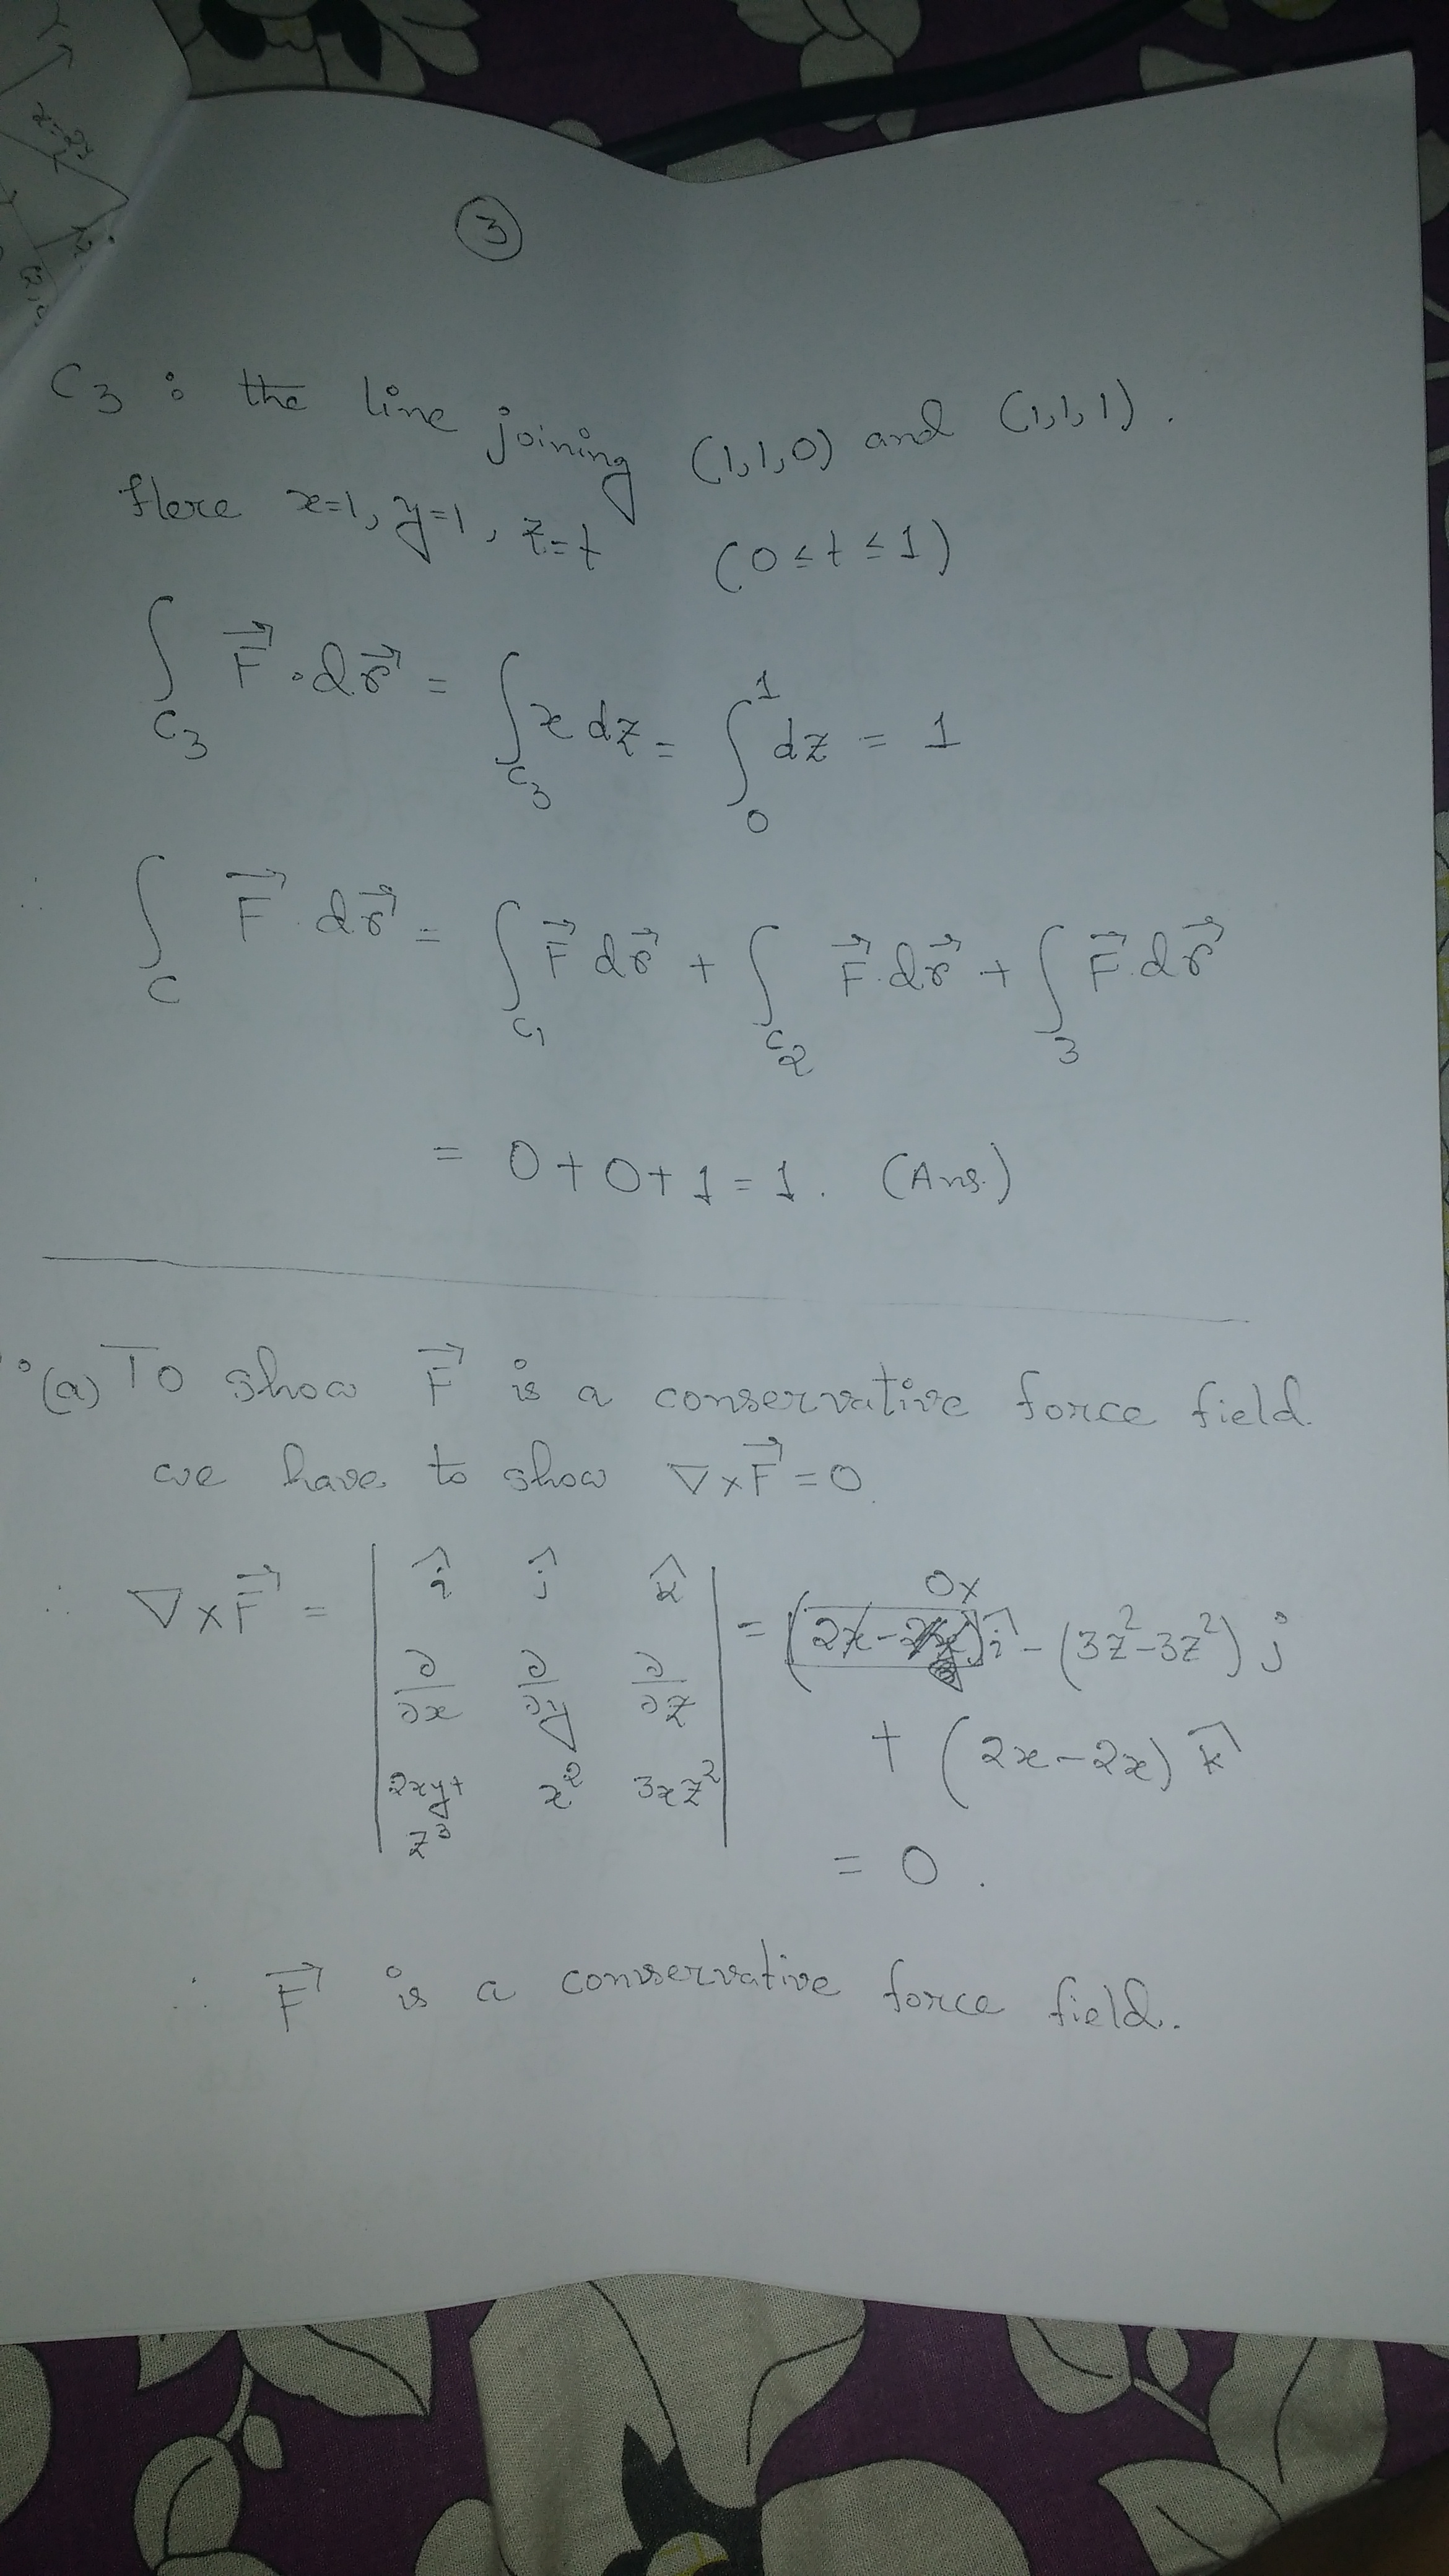 ③
C3 : the line joining (1,1,0) and (1,1,1).
Here x=1, y=1, z=t (0≤t≤1)
∫_C3 F⃗·dr⃗ = ∫_C3 x dz = ∫_0^1 dz = 1
∴ ∫_C F⃗·dr⃗ = ∫_C1 F⃗ dr⃗ + ∫_C2 F⃗·dr⃗ + ∫_3 F⃗·dr⃗
= 0+0+1=1. (Ans.)
(a) To show F⃗ is a conservative force field
we have to show ∇×F⃗=0.
∴ ∇×F⃗ = | î ĵ k̂ | = ( 0x ) î - (3z²-3z²) j
∂/∂x ∂/∂y ∂/∂z
+ (2x-2x) k̂
2xy+z³ x² 3xz²
= 0.
∴ F⃗ is a conservative force field.